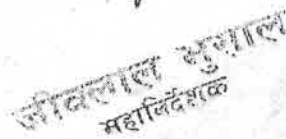 जीवलाल भुसाल
महानिर्देशक